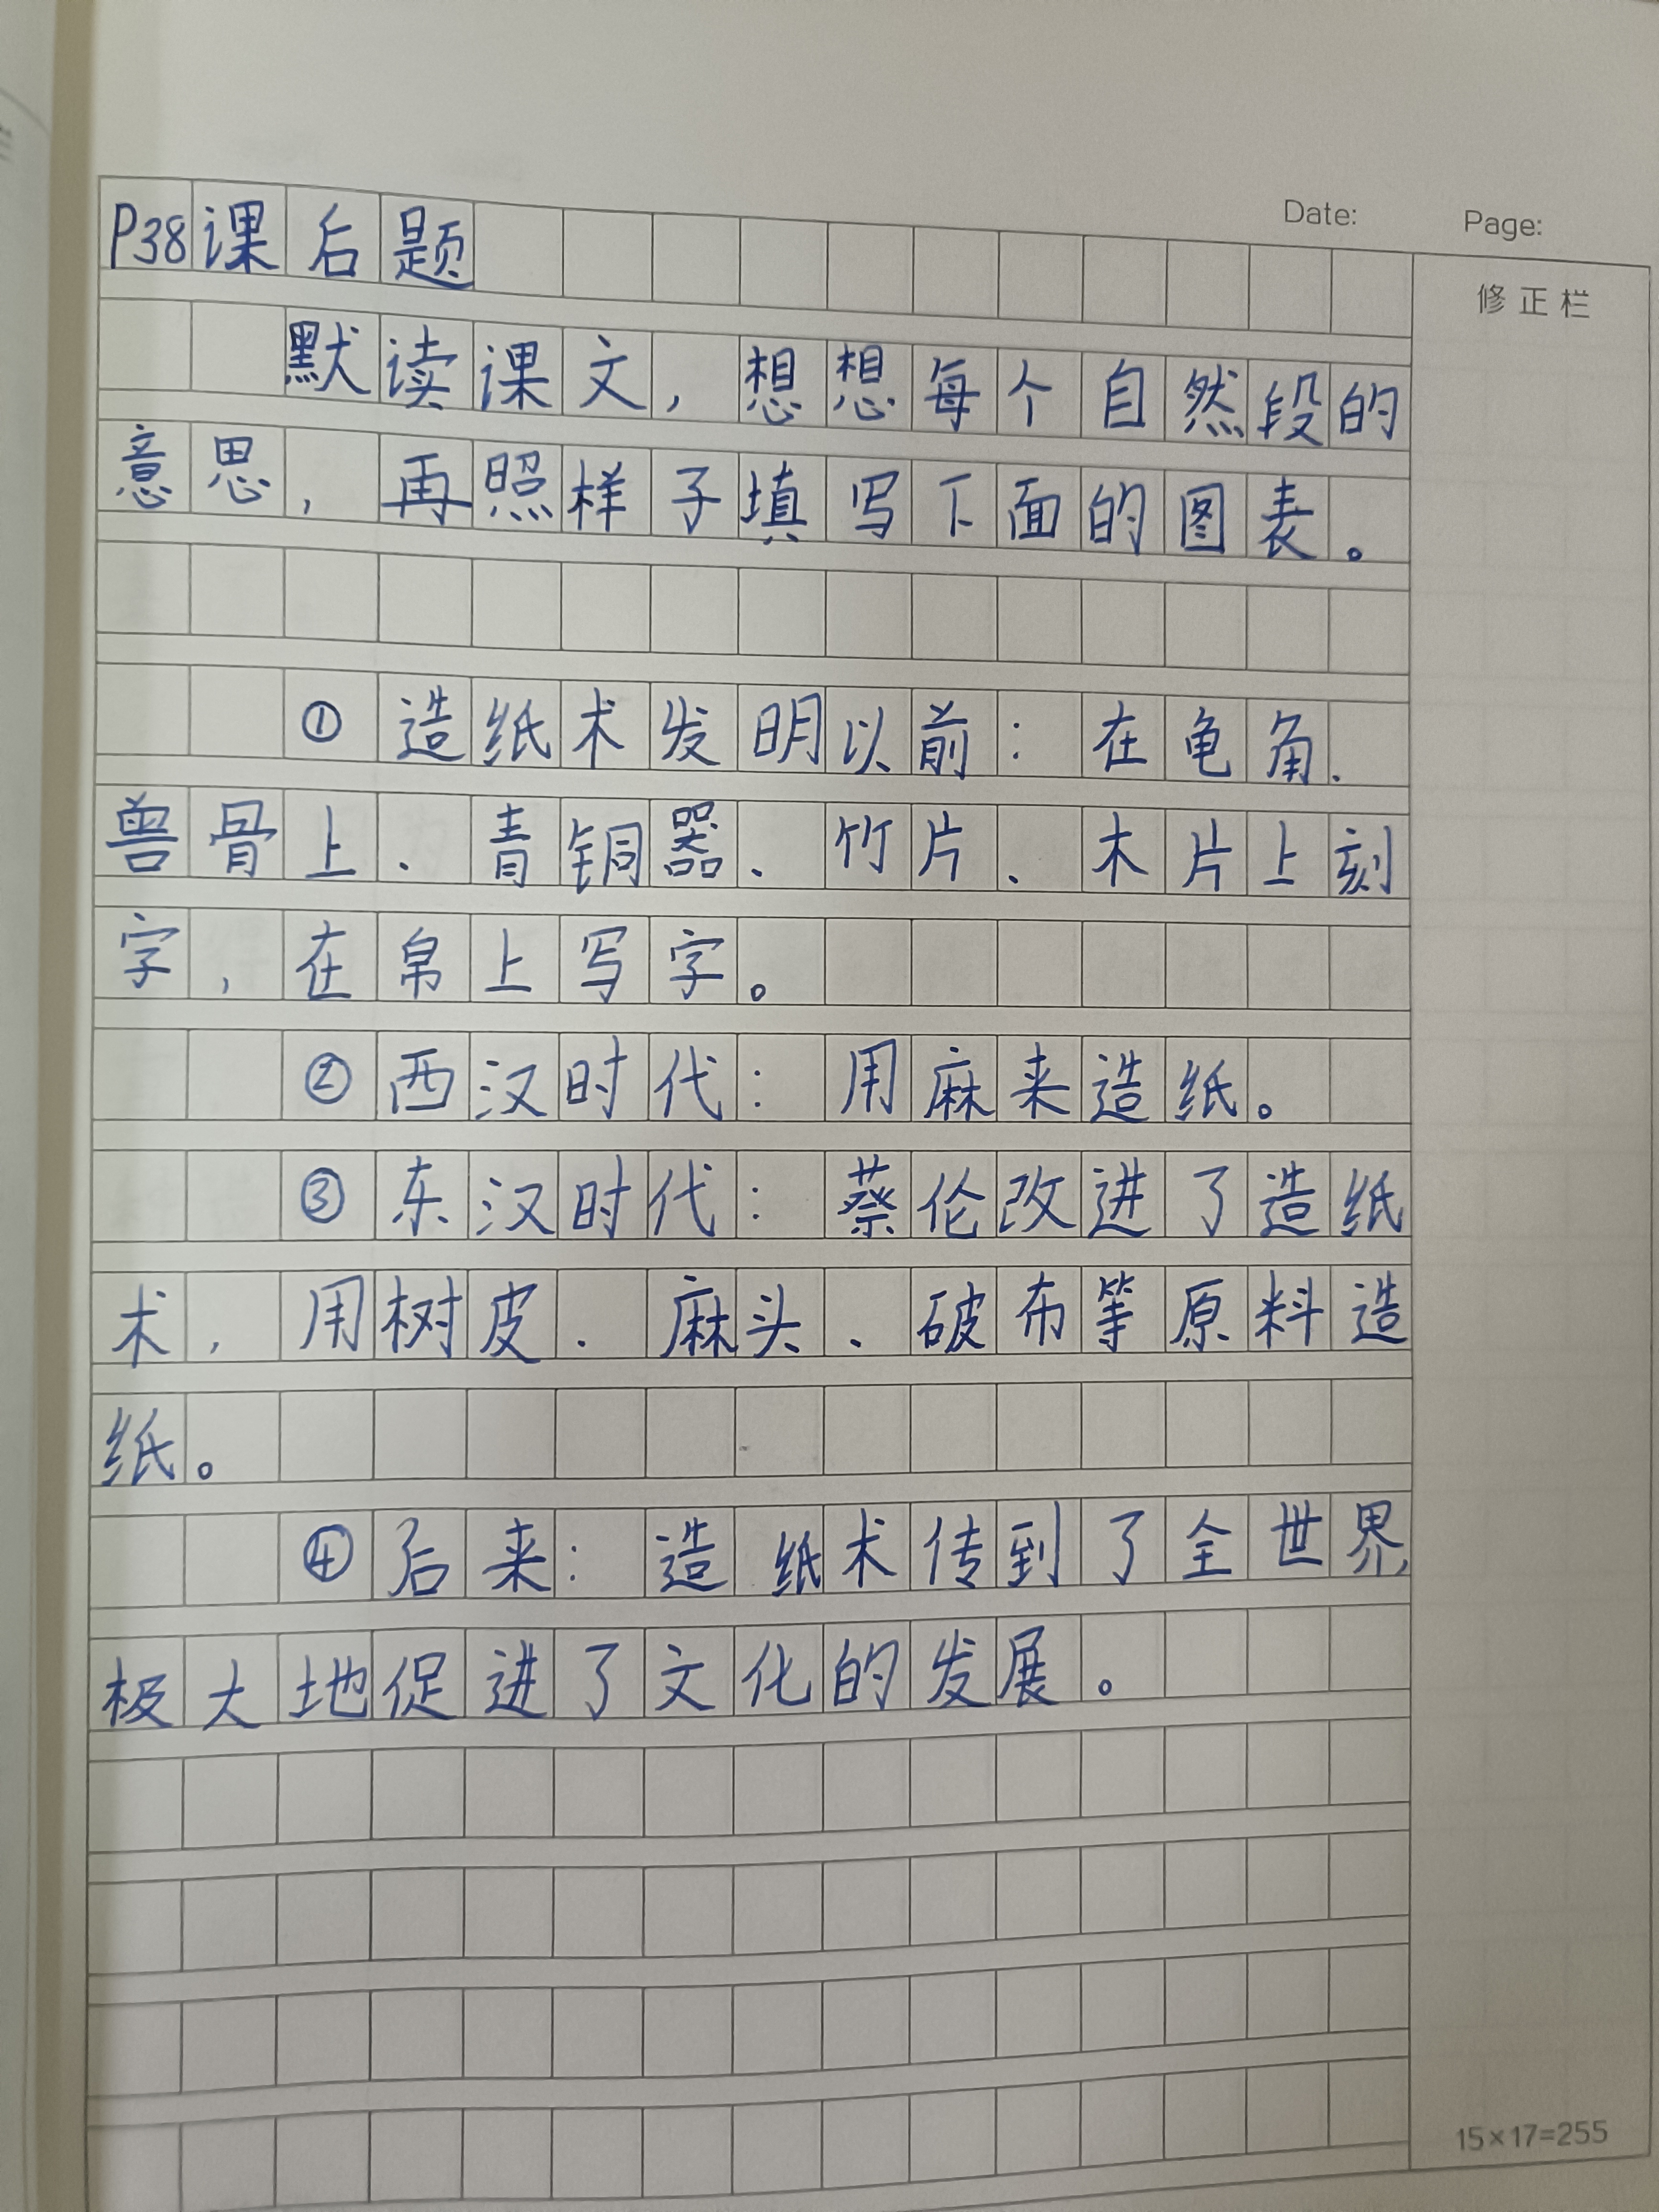 Date: Page:
修正栏
P38课后题
默读课文，想想每个自然段的
意思，再照样子填写下面的图表。
①造纸术发明以前：在龟角、
兽骨上、青铜器、竹片、木片上刻
字，在帛上写字。
②西汉时代：用麻来造纸。
③东汉时代：蔡伦改进了造纸
术，用树皮、麻头、破布等原料造
纸。
④后来：造纸术传到了全世界，
极大地促进了文化的发展。
15×17=255